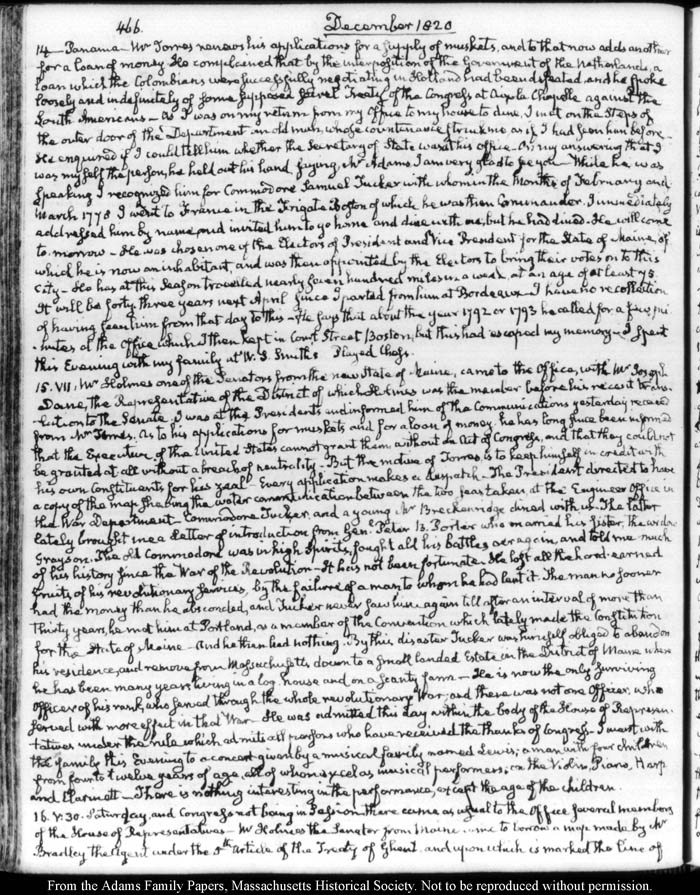 466.
December 1820
14 — Panama — Mr Torres renews his applications for a supply of muskets, and to that now adds another
for a loan of money. He complained that by the interposition of the Government of the Netherlands, a
loan which the Colombians were successfully negotiating in Holland had been defeated, and he spoke
loosely and indefinitely of some supposed secret Treaty of the Congress at Aix la Chapelle against the
South Americans — As I was on my return from my Office to my house to dine, I met on the Steps of
the outer door of the Department an old man, whose countenance struck me as if I had seen him before.
He enquired if I could tell him whether the Secretary of State was at his office — On my answering that I
was myself the person, he held out his hand, saying, Mr Adams I am very glad to see you — While he was
speaking I recognized him for Commodore Samuel Tucker with whom in the Months of February and
March 1778 I went to France in the Frigate Boston of which he was then Commander. I immediately
addressed him by name, and invited him to go home and dine with me, but he had dined. He will come
to-morrow — He was chosen one of the Electors of President and Vice President for the State of Maine, of
which he is now an inhabitant, and was then appointed by the Electors to bring their votes on to this
City — He has at this Season travelled nearly seven hundred miles in a week, at an age of at least 75.
It will be forty three years next April since I parted from him at Bordeaux — I have no recollection
of having seen him from that day to this — He says that about the year 1792 or 1793 he called for a few mi-
nutes at the Office which I then kept in Court Street Boston, but this had escaped my memory — I spent
this Evening with my family at W. S. Smith's Played Chess.
15. VII. Mr Holmes one of the Senators from the new State of Maine, came to the Office, with Mr Joseph
Dane, the Representative of the District of which Holmes was the member before his recent trans-
lection to the Senate. I was at the Presidents and informed him of the Communications yesterday received
from Mr Torres. As to his applications for muskets and for a loan of money, he has long since been informed
that the Executive of the United States cannot grant them without an Act of Congress, and that they could not
be granted at all without a breach of neutrality — But the motive of Torres is to keep himself in credit with
his own Constituents for his zeal. Every application makes a despatch — The President directed to have
a copy of the map shewing the water communication between the two seas taken, at the Engineer Office in
the War Department — Commodore Tucker, and a young Mr Breckenridge dined with us. The latter
lately brought me a Letter of introduction from Genl Peter B. Porter who married his Sister, the widow
Grayson. The old Commodore was in high Spirits, fought all his battles o'er again, and told me much
of his history since the War of the Revolution — It has not been fortunate. He lost all the hard-earned
fruits of his revolutionary services, by the failure of a man to whom he had lent it. The man no sooner
had the money than he absconded, and Tucker never saw him again till after an interval of more than
thirty years, he met him at Portland, as a member of the Convention which lately made the Constitution
for the State of Maine — And he then had nothing. By this disaster Tucker was himself obliged to abandon
his residence, and remove from Massachusetts down to a small landed Estate in the District of Maine where
he has been many years living in a log-house and on a scanty farm — He is now the only surviving
officer of his rank, who served through the whole revolutionary War, and there was not one Officer, who
served with more effect in that War — He was admitted this day within the body of the House of Represen-
tatives under the rule which admits all persons who have received the thanks of Congress. I went with
the family this Evening to a concert given by a musical family named Lewis; a man with four children
from four to twelve years of age, all of whom excel as musical performers, on the Violin, Piano, Harp
and Clarinett — There is nothing interesting in the performance, except the age of the children.
16. V:30. Saturday, and Congress not being in Session there came as usual to the Office several members
of the House of Representatives — Mr Holmes the Senator from Maine came to borrow a map made by Mr
Bradley the Agent under the 5th article of the Treaty of Ghent, and upon which is marked the line of
From the Adams Family Papers, Massachusetts Historical Society. Not to be reproduced without permission.